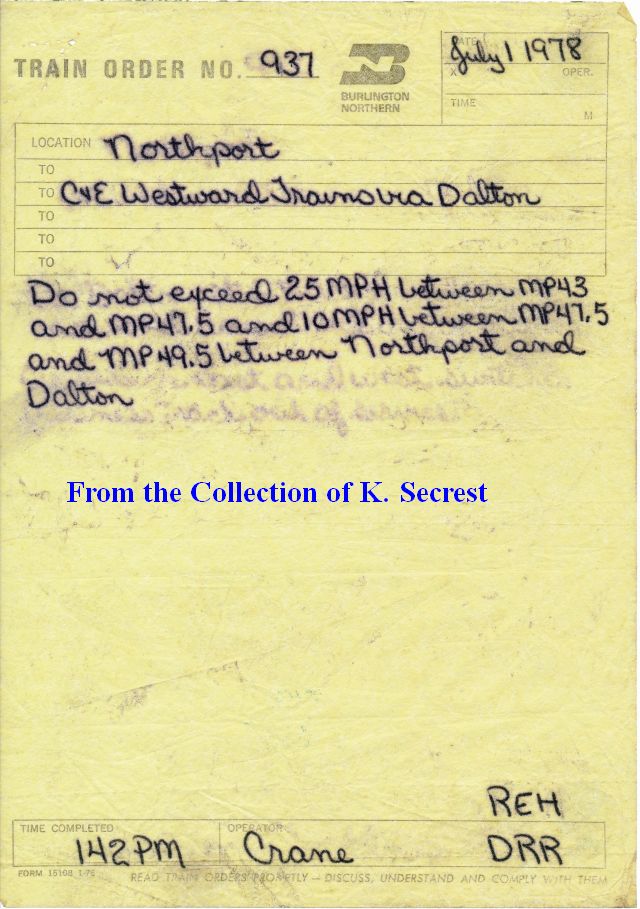 TRAIN ORDER NO. 937
BURLINGTON
NORTHERN
DATE
July 1 1978
X OPER.
TIME
M
LOCATION Northport
TO
TO C&E Westward Trains via Dalton
TO
TO
TO
Do not exceed 25 MPH between MP43
and MP47.5 and 10 MPH between MP47.5
and MP49.5 between Northport and
Dalton
From the Collection of K. Secrest
REH
TIME COMPLETED
142 PM
OPERATOR
Crane
DRR
FORM 15108 1-76
READ TRAIN ORDERS PROMPTLY — DISCUSS, UNDERSTAND AND COMPLY WITH THEM